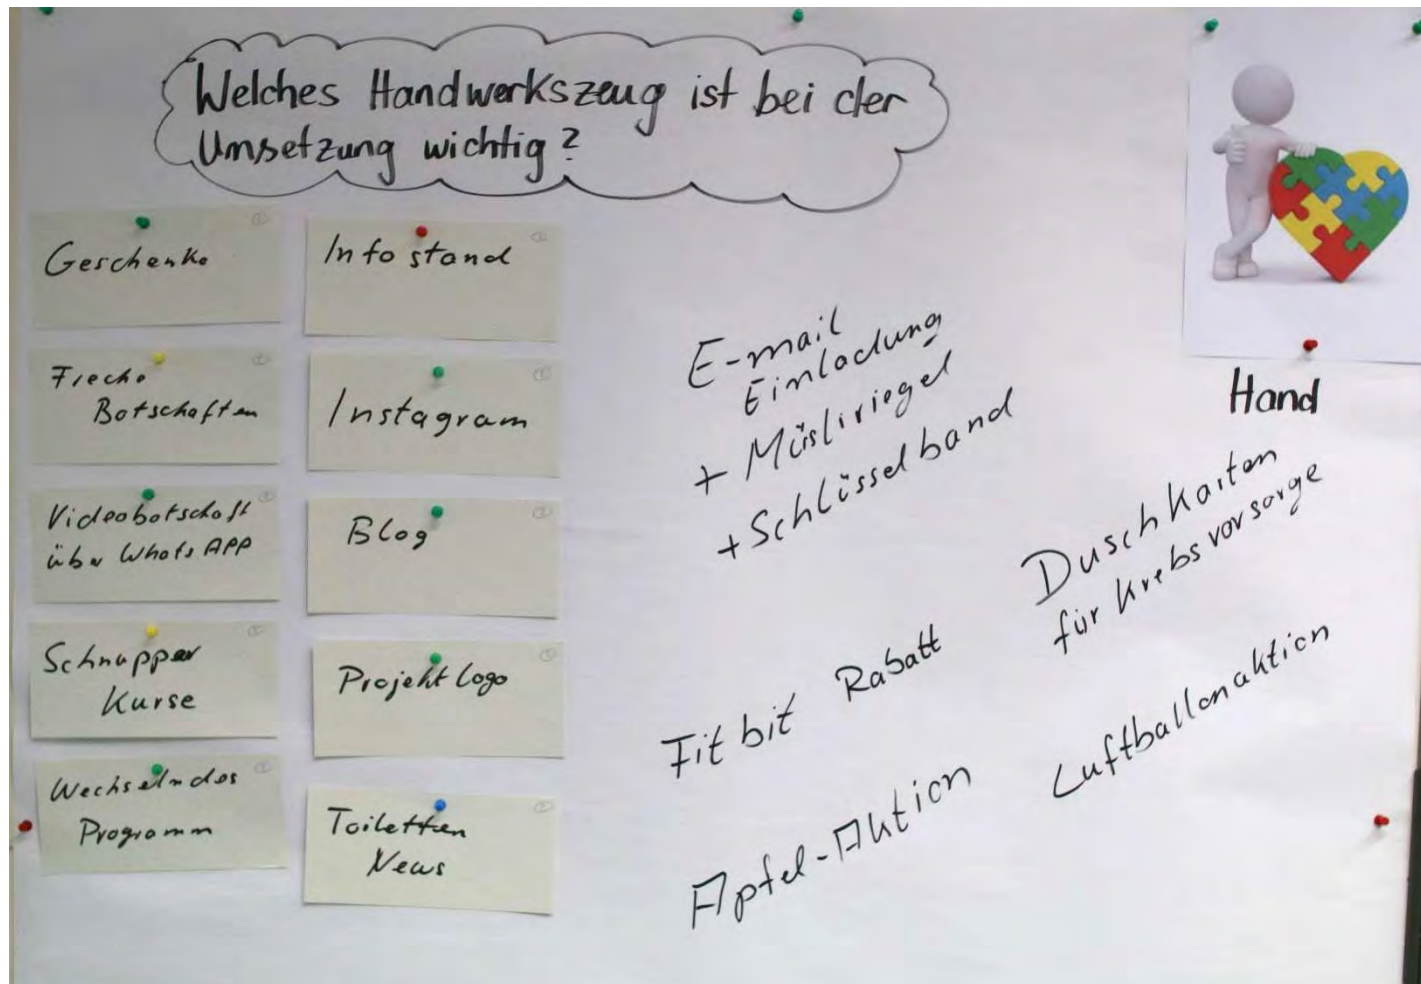 Welches Handwerkszeug ist bei der
Umsetzung wichtig?
Geschenke
Freche
Botschaften
Videobotschaft
über WhatsAPP
Schnupper
Kurse
Wechselndes
Programm
Infostand
Instagram
Blog
Projekt Logo
Toiletten
News
E-mail
Einladung
+ Müsliriegel
+ Schlüsselband
Fit bit Rabatt
Apfel-Aktion
Hand
Duschkarten
für Krebsvorsorge
Luftballonaktion